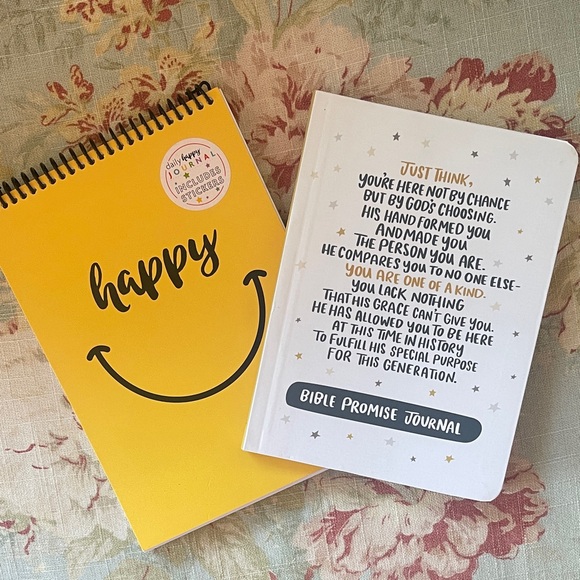 daily happy
JOURNAL
INCLUDES
STICKERS
happy
JUST THINK,
YOU'RE HERE NOT BY CHANCE
BUT BY GOD'S CHOOSING.
HIS HAND FORMED YOU
AND MADE YOU
THE PERSON YOU ARE.
HE COMPARES YOU TO NO ONE ELSE-
YOU ARE ONE OF A KIND.
YOU LACK NOTHING
THAT HIS GRACE CAN'T GIVE YOU.
HE HAS ALLOWED YOU TO BE HERE
AT THIS TIME IN HISTORY
TO FULFILL HIS SPECIAL PURPOSE
FOR THIS GENERATION.
BIBLE PROMISE JOURNAL